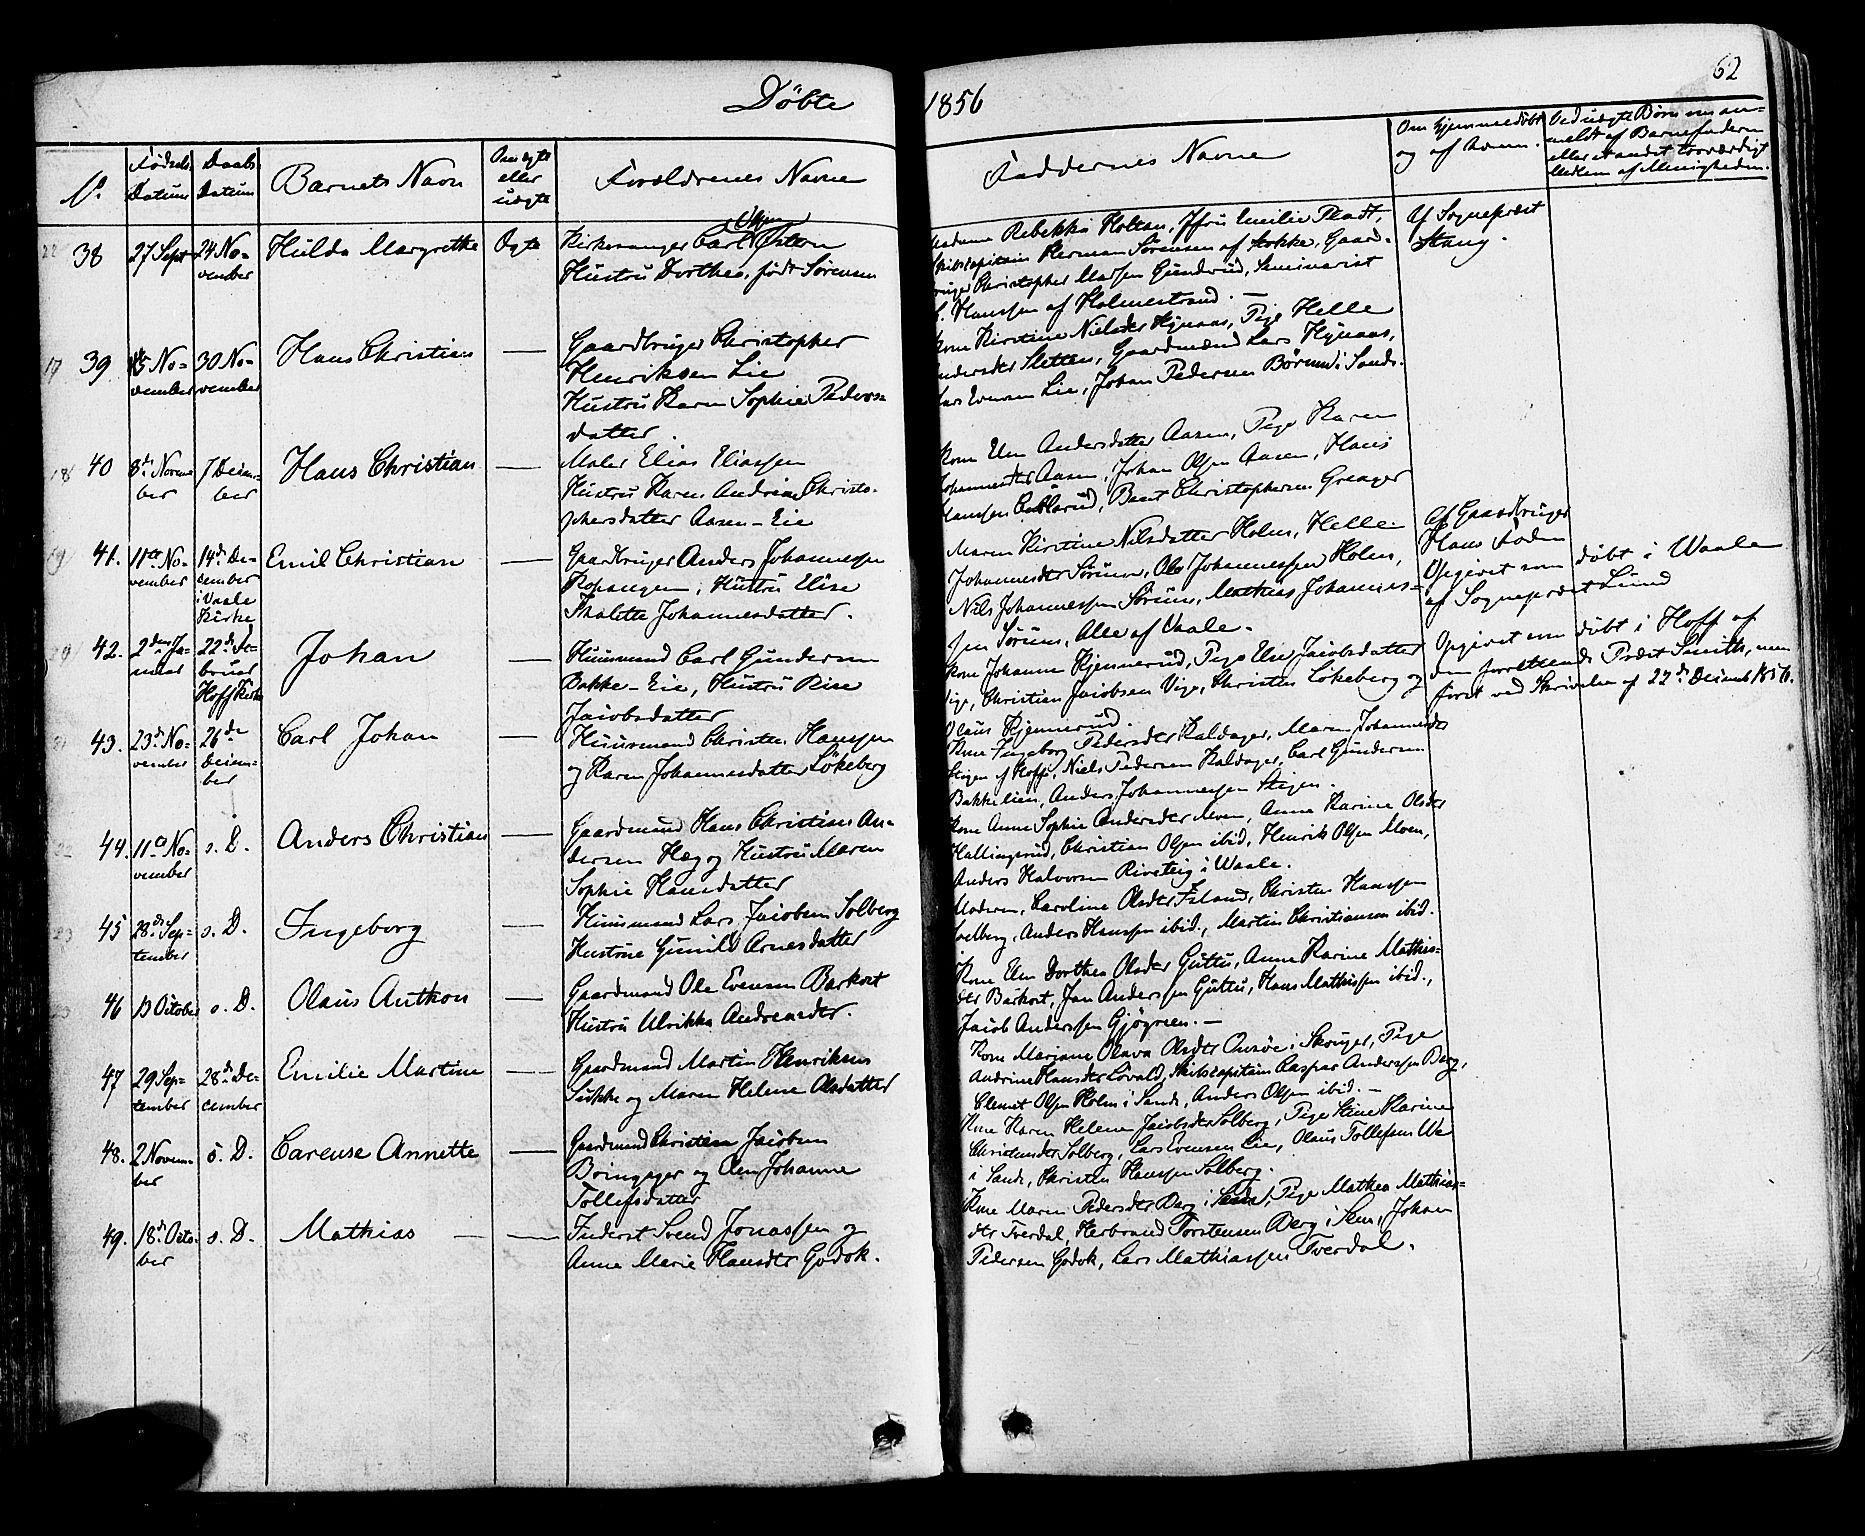 Döbte
1856
62
No.
Födsels
Datum
Daabs
Datum
Barnets Navn
Om ægte
eller
uægte
Forældrenes Navne
Faddernes Navne
Om hjemmedöbt
og af hvem.
Ved uægte Börn om an-
meldt af Barnefaderen
eller et andet troværdigt
Medlem af Menigheden.
38
27 Sept
24 No-
vember
Hulda Margrethe
Ægte
Kirkesanger Carl Östen
Hustru Dorthea, födt Sörensen
Madame Rebekka Holtan, Jfru Emilie Pladt,
Skibscapitain Herman Sörensen af Stokke, Gaard-
bruger Christopher Madsen Gunderud, Seminarist
Hanssen af Holmestrand. —
Af Sognepræst
Stang.
39
No-
vember
30 No-
vember
Hans Christian
—
Gaardbruger Christopher
Henriksen Lie
Hustru Karen Sophie Peders-
datter.
Kone Kirstine Nielsdtr Hynaas, Pige Helle
Andersdtr Sletten, Gaardmænd Lars Hynaas,
Lars Evensen Lie, Johan Pedersen Börsund i Sande.
40
8de Novem
ber
7 Decem-
ber
Hans Christian
—
Maler Elias Eliassen
Hustru Karen Andrine Christo-
phersdatter Aasen-Eie
Kone Elen Andersdatter Aasen, Pige Karen
Johannesdtr Aasen, Johan Olsen Aasen, Hans
Hanssen, Bent Christophersen Greager
41.
11te No-
vember
14de De-
cember
i Vaale
Kirke
Emil Christian
—
Gaardbruger Anders Johannessen
Kopangen, Hustru Elise
Thalette Johannesdatter.
Maren Kirstine Nilsdatter Holm, Helle
Johannesdtr Sörum, Ole Johannessen Holm,
Nils Johannessen Sörum, Mathias Johannes-
sen Sörum, Alle af Vaale.
Af Gaardbruger
Hans Foden
Opgivet som döbt i Waale
af Sognepræst Lund
42.
2den Ja-
nuar
22de Fe-
bruar
Hoff Kirke
Johan
—
Huusmand Carl Gundersen
Bakke-Eie, Hustru Kise
Jacobsdatter
Kone Johanne Kjennerud, Pige Else Jacobsdatter
Vige, Christian Jacobsen Vige, Christen Lökeberg og
Olaus Kjennerud.
Opgivet som döbt i Hoff af
den forrettende Præst Smith, nu
först ved Skrivelse af 22de Decemb 1856.
43.
23de No-
vember
26de
Decem-
ber
Carl Johan
—
Huusmand Christen Hanssen
og Karen Johannesdatter Lökeberg
Kone Ingeborg Pedersdtr Kaldager, Maren Johannesdtr
Stigen af Hoff, Niels Pedersen Kaldager, Carl Gundersen
Bakkelien, Anders Johannessen Stigen.
44.
11te No-
vember
s. D.
Anders Christian
—
Gaardmand Hans Christian An-
dersen Hæg og Hustru Maren
Sophie Hansdatter
Kone Anne Sophie Andersdtr Moen, Anne Karine Olsdtr
Hallingsrud, Christian Olsen ibid, Henrik Olsen Moen,
Anders Halvorsen Rivsteig i Waale.
45
28de Sep-
tember
s. D.
Ingeborg
—
Huusmand Lars Jacobsen Solberg
Hustrue Gunild Arnesdatter
Moderen, Karoline Olsdtr Island, Christen Hanssen
Solberg, Anders Hanssen ibid., Martin Christiansen ibid.
46
13 October
s. D.
Olaus Anthon
—
Gaardmand Ole Evensen Barkost
Hustru Ulrikka Andreasdtr.
Kone Elen Dorthea Olsdtr Guttu, Anne Karine Mathis-
dtr Barkost, Jan Anderssen Guttu, Hans Mathissen ibid.,
Jacob Anderssen Gjögreen. —
47
29 Sep-
tember
28de De-
cember
Emilie Martine
—
Gaardmand Martin Henriksen
Sukke og Maren Helene Olsdatter
Kone Mariane Olava Olsdtr Onsöe i Skouger, Pige
Andrine Hansdtr Lövald, Skibscapitain Caspar Anderssen Berg,
Clemet Olsen Holm i Sande, Anders Olsen ibid. —
48.
2 Novem-
ber
s. D.
Carense Annette
—
Gaardmand Christen Jacobsen
Bringager og Elen Johanne
Tollefsdatter
Kone Karen Helene Jacobsdtr Solberg, Pige Stine Karine
Christensdtr Solberg, Lars Evensen Lie, Olaus Tollefsen We
i Sande, Christen Hanssen Solberg.
49.
18de Octo-
ber
s. D.
Mathias
—
Inderst Svend Jonassen og
Anne Marie Hansdtr Godok.
Kone Maren Pedersdtr Berg i Sem, Pige Mathea Mathias-
dtr Tverdal, Herbrand Torstensen Berg i Sem, Johan
Pedersen Godok, Lars Mathiassen Tverdal.